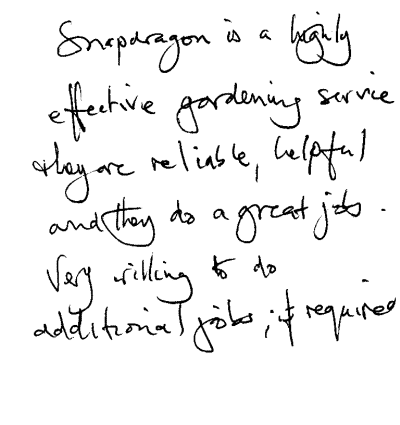 Snapdragon is a highly
effective gardening service
they are reliable, helpful
and they do a great job.
Very willing to do
additional jobs, if required